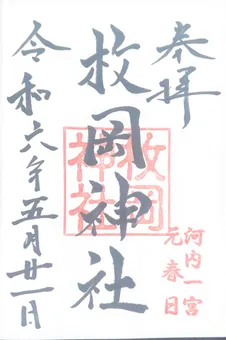 奉拝
河内一宮
元春日
枚岡神社
枚岡
神社
令和六年五月廿一日